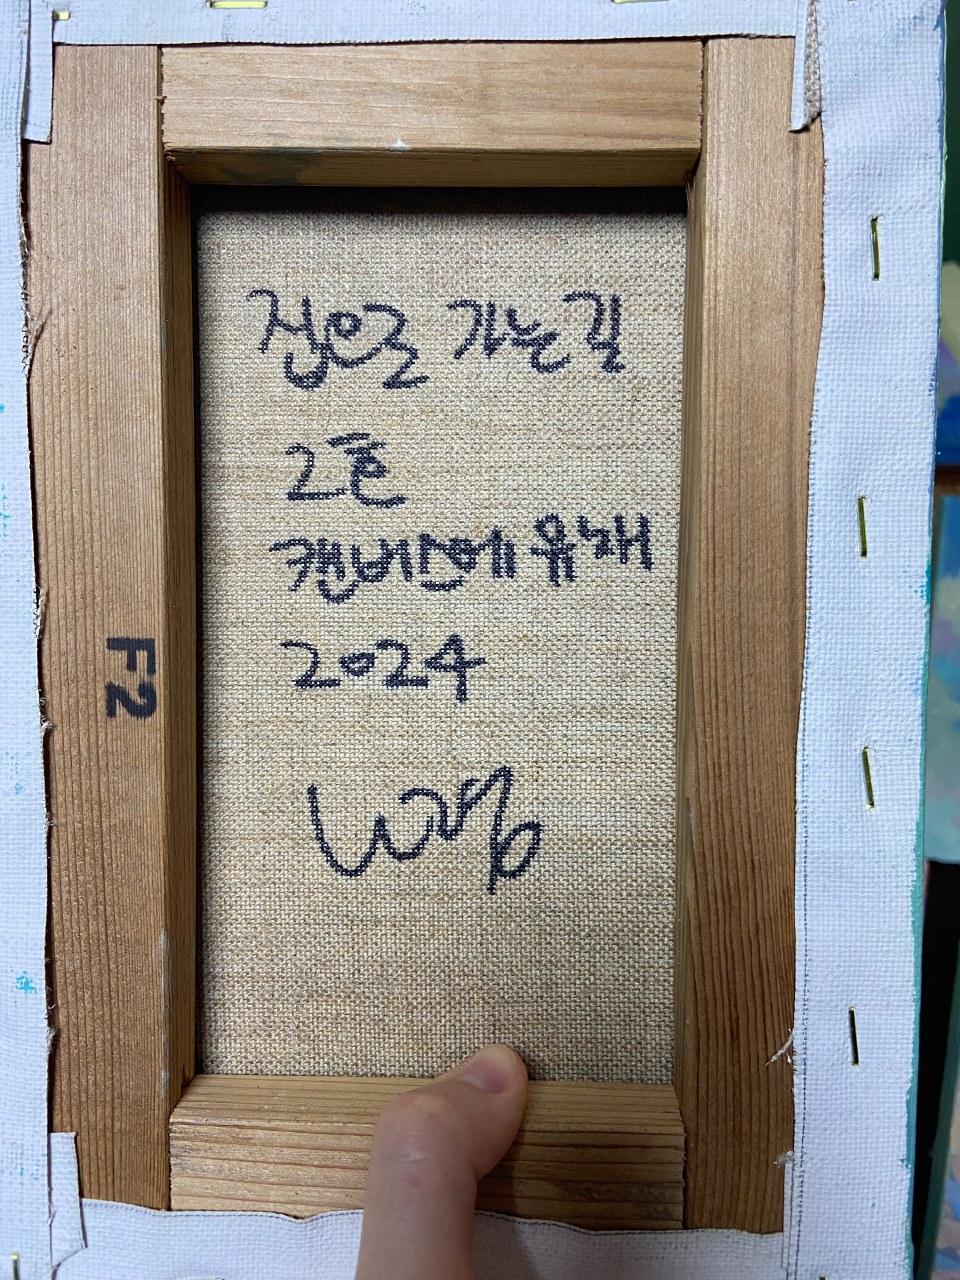 집으로 가는길
2호
캔버스에 유채
2024
F2